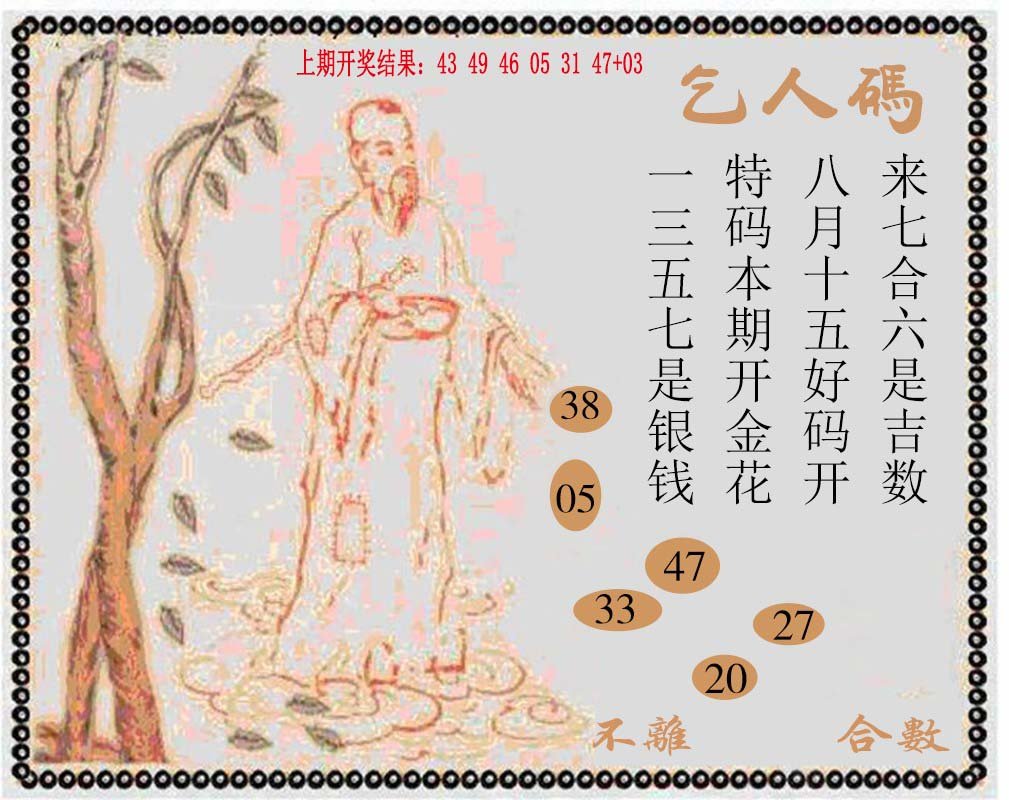 上期开奖结果：43 49 46 05 31 47+03
乞人碼
来七合六是吉数
八月十五好码开
特码本期开金花
一三五七是银钱
38
05
47
33
27
20
不離
合數